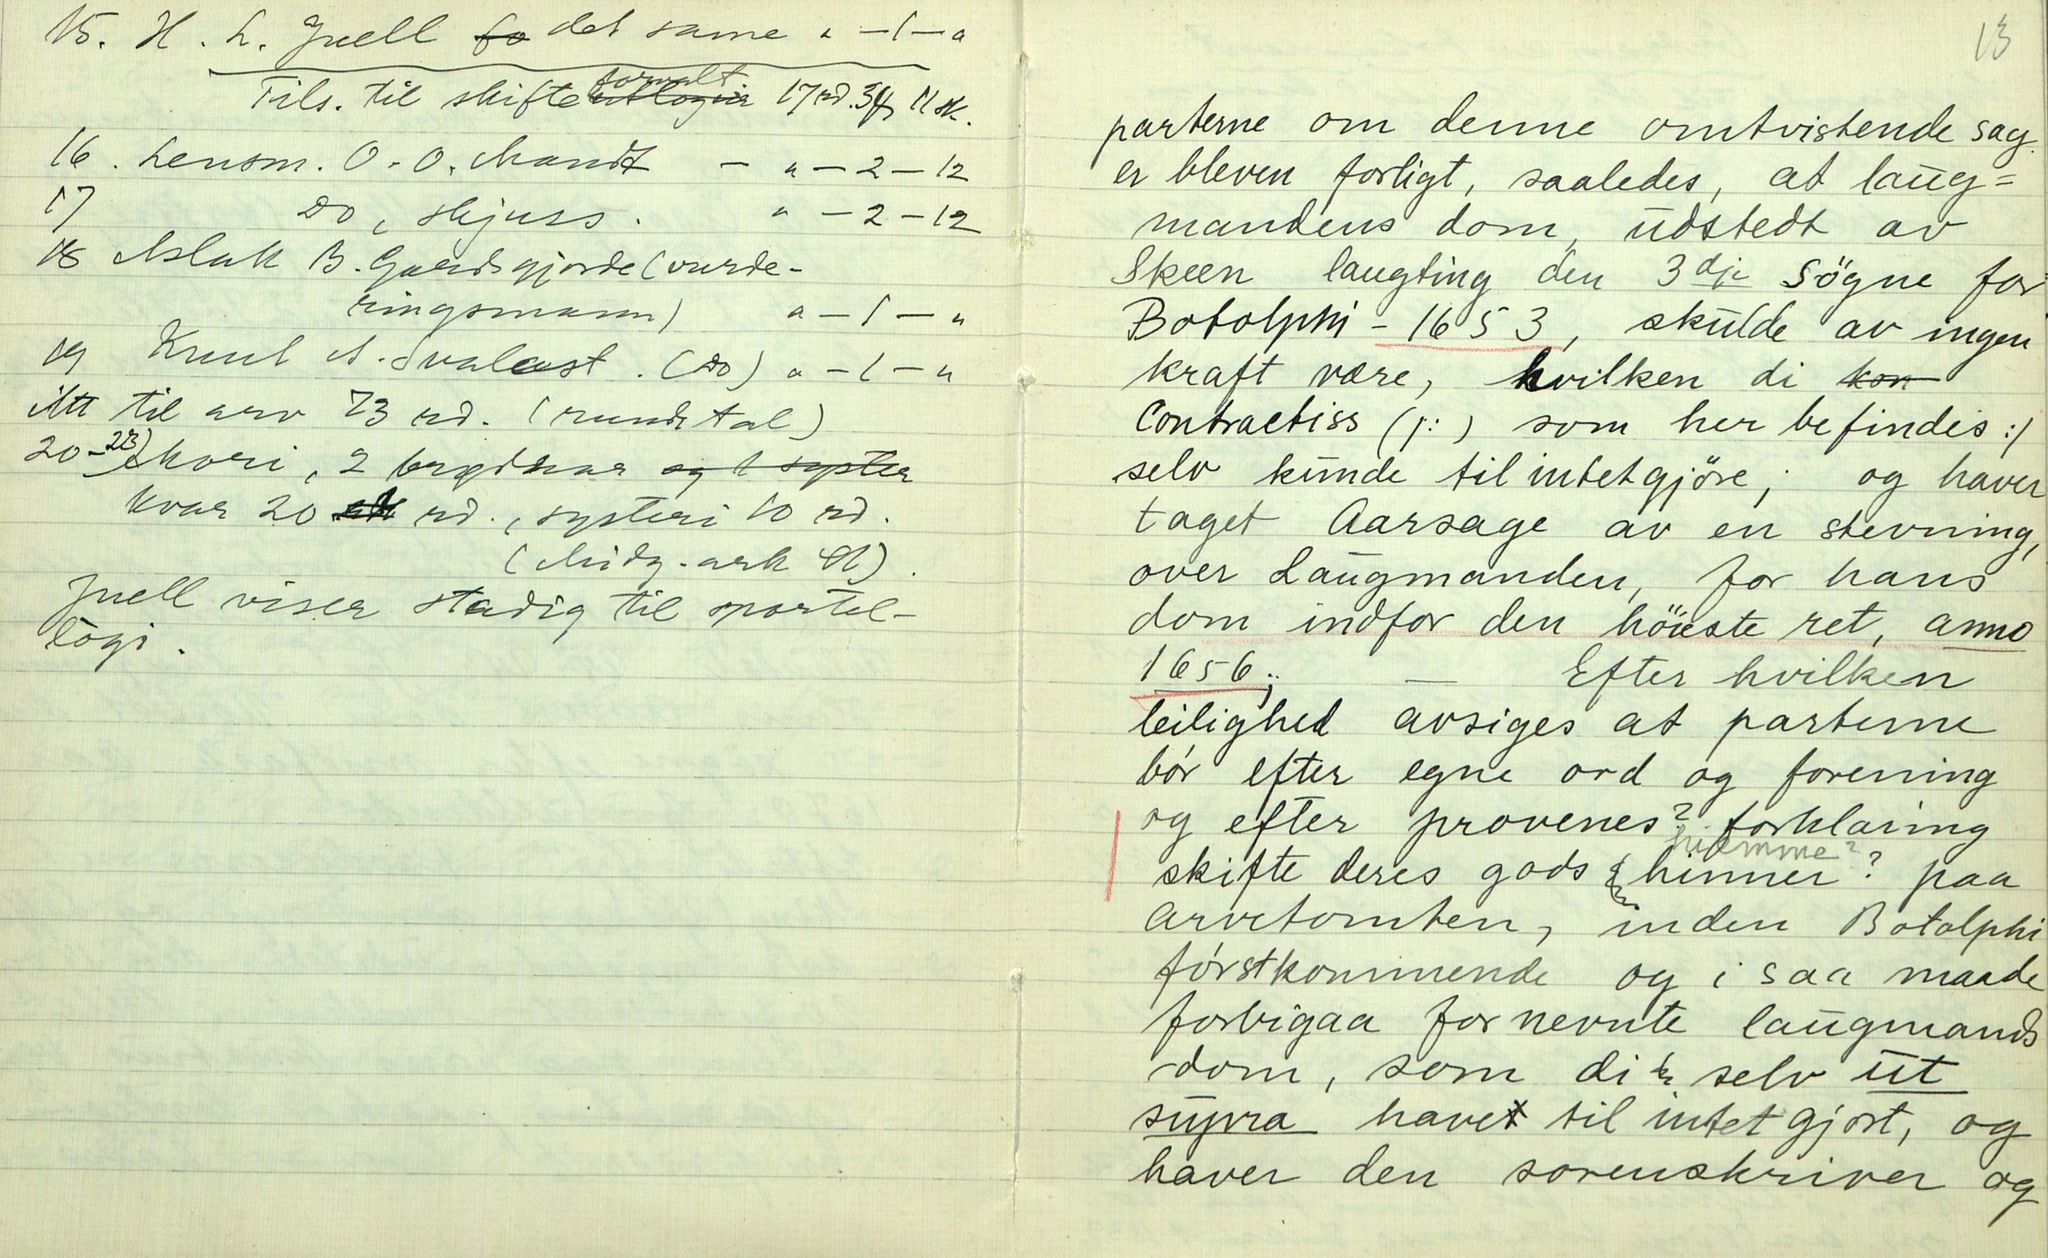 15. H. L. Juell fo det same " — 1 — "
Tils. til skifteforvalt 17 rd. 3 ƒ 11 sk.
16. Lensm. O. O. Mandt — " — 2 — 12
17 Do, skjuss. " — 2 — 12
18 Aslak B. Gaardsgjorde (vurde-
ringsmann) " — 1 — "
19 Knut A. Svalast. (Do) " — 1 — "
Att til arv 73 rd. (rundt tal)
20-23) Mori, 2 brørar og 1 syster
kvar 20 rd., systeri 10 rd.
(Midz. ark A).
Juell viser stadig til sportel-
logi.
13
parterne om denne omtvistende sag
er bleven forligt, saaledes, at laug=
mandens dom, udstedt av
Skeen laugting den 3dje Sögne for
Botolphi - 1653, skulde av ingen
kraft være, hvilken di kon
Contractiss (ɔ: ) som her befindes :/
selv kunde til intet gjöre; og haver
taget Aarsage av en stevning,
over Laugmanden, for hans
dom indfor den höieste ret, anno
1656; — Efter hvilken
leilighed avsiges at parterne
bör efter egne ord og forening
og efter provenes? forklaring
hiemme?
skifte deres gods & hinner? paa
arvetomten, inden Botolphi
förstkommende og i saa maade
forbigaa fornevnte laugmands
dom, som di selv ut
supra havet til intet gjort, og
haver den sorenskriver og